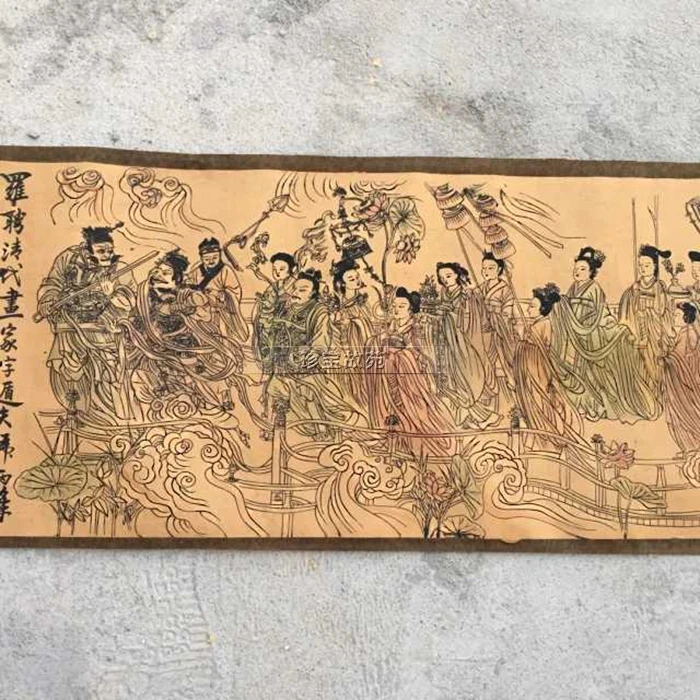 羅聘清代畫家字遁夫號两峯
珍宝故苑